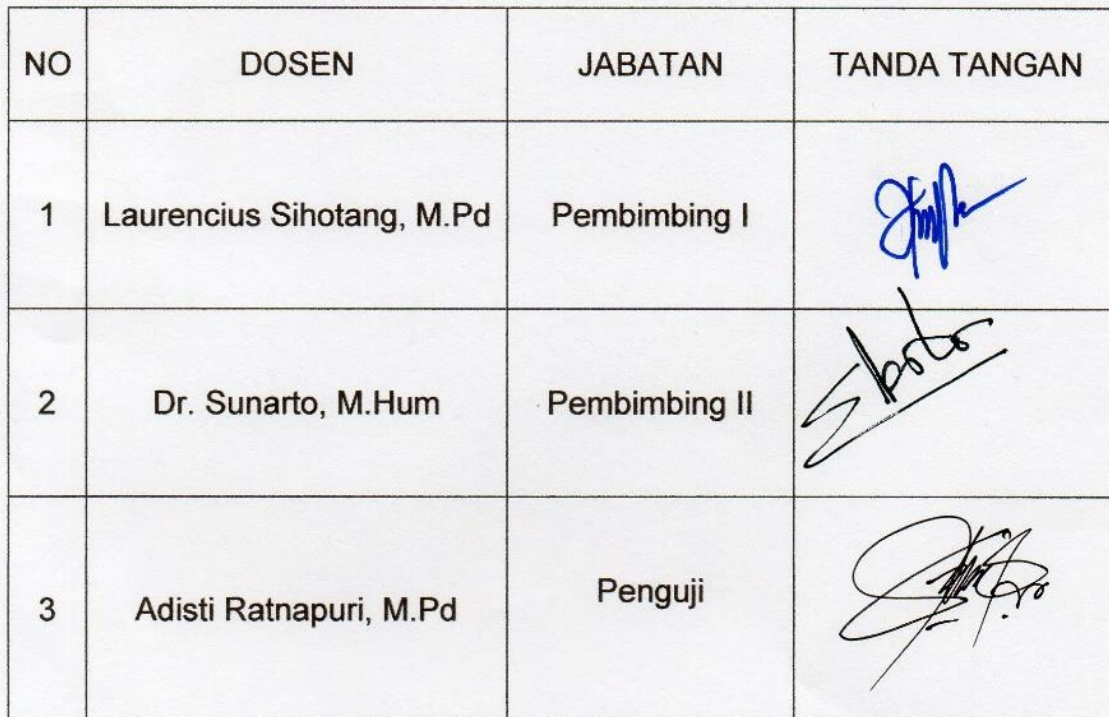 NO DOSEN JABATAN TANDA TANGAN
1 Laurencius Sihotang, M.Pd Pembimbing I
2 Dr. Sunarto, M.Hum Pembimbing II
3 Adisti Ratnapuri, M.Pd Penguji